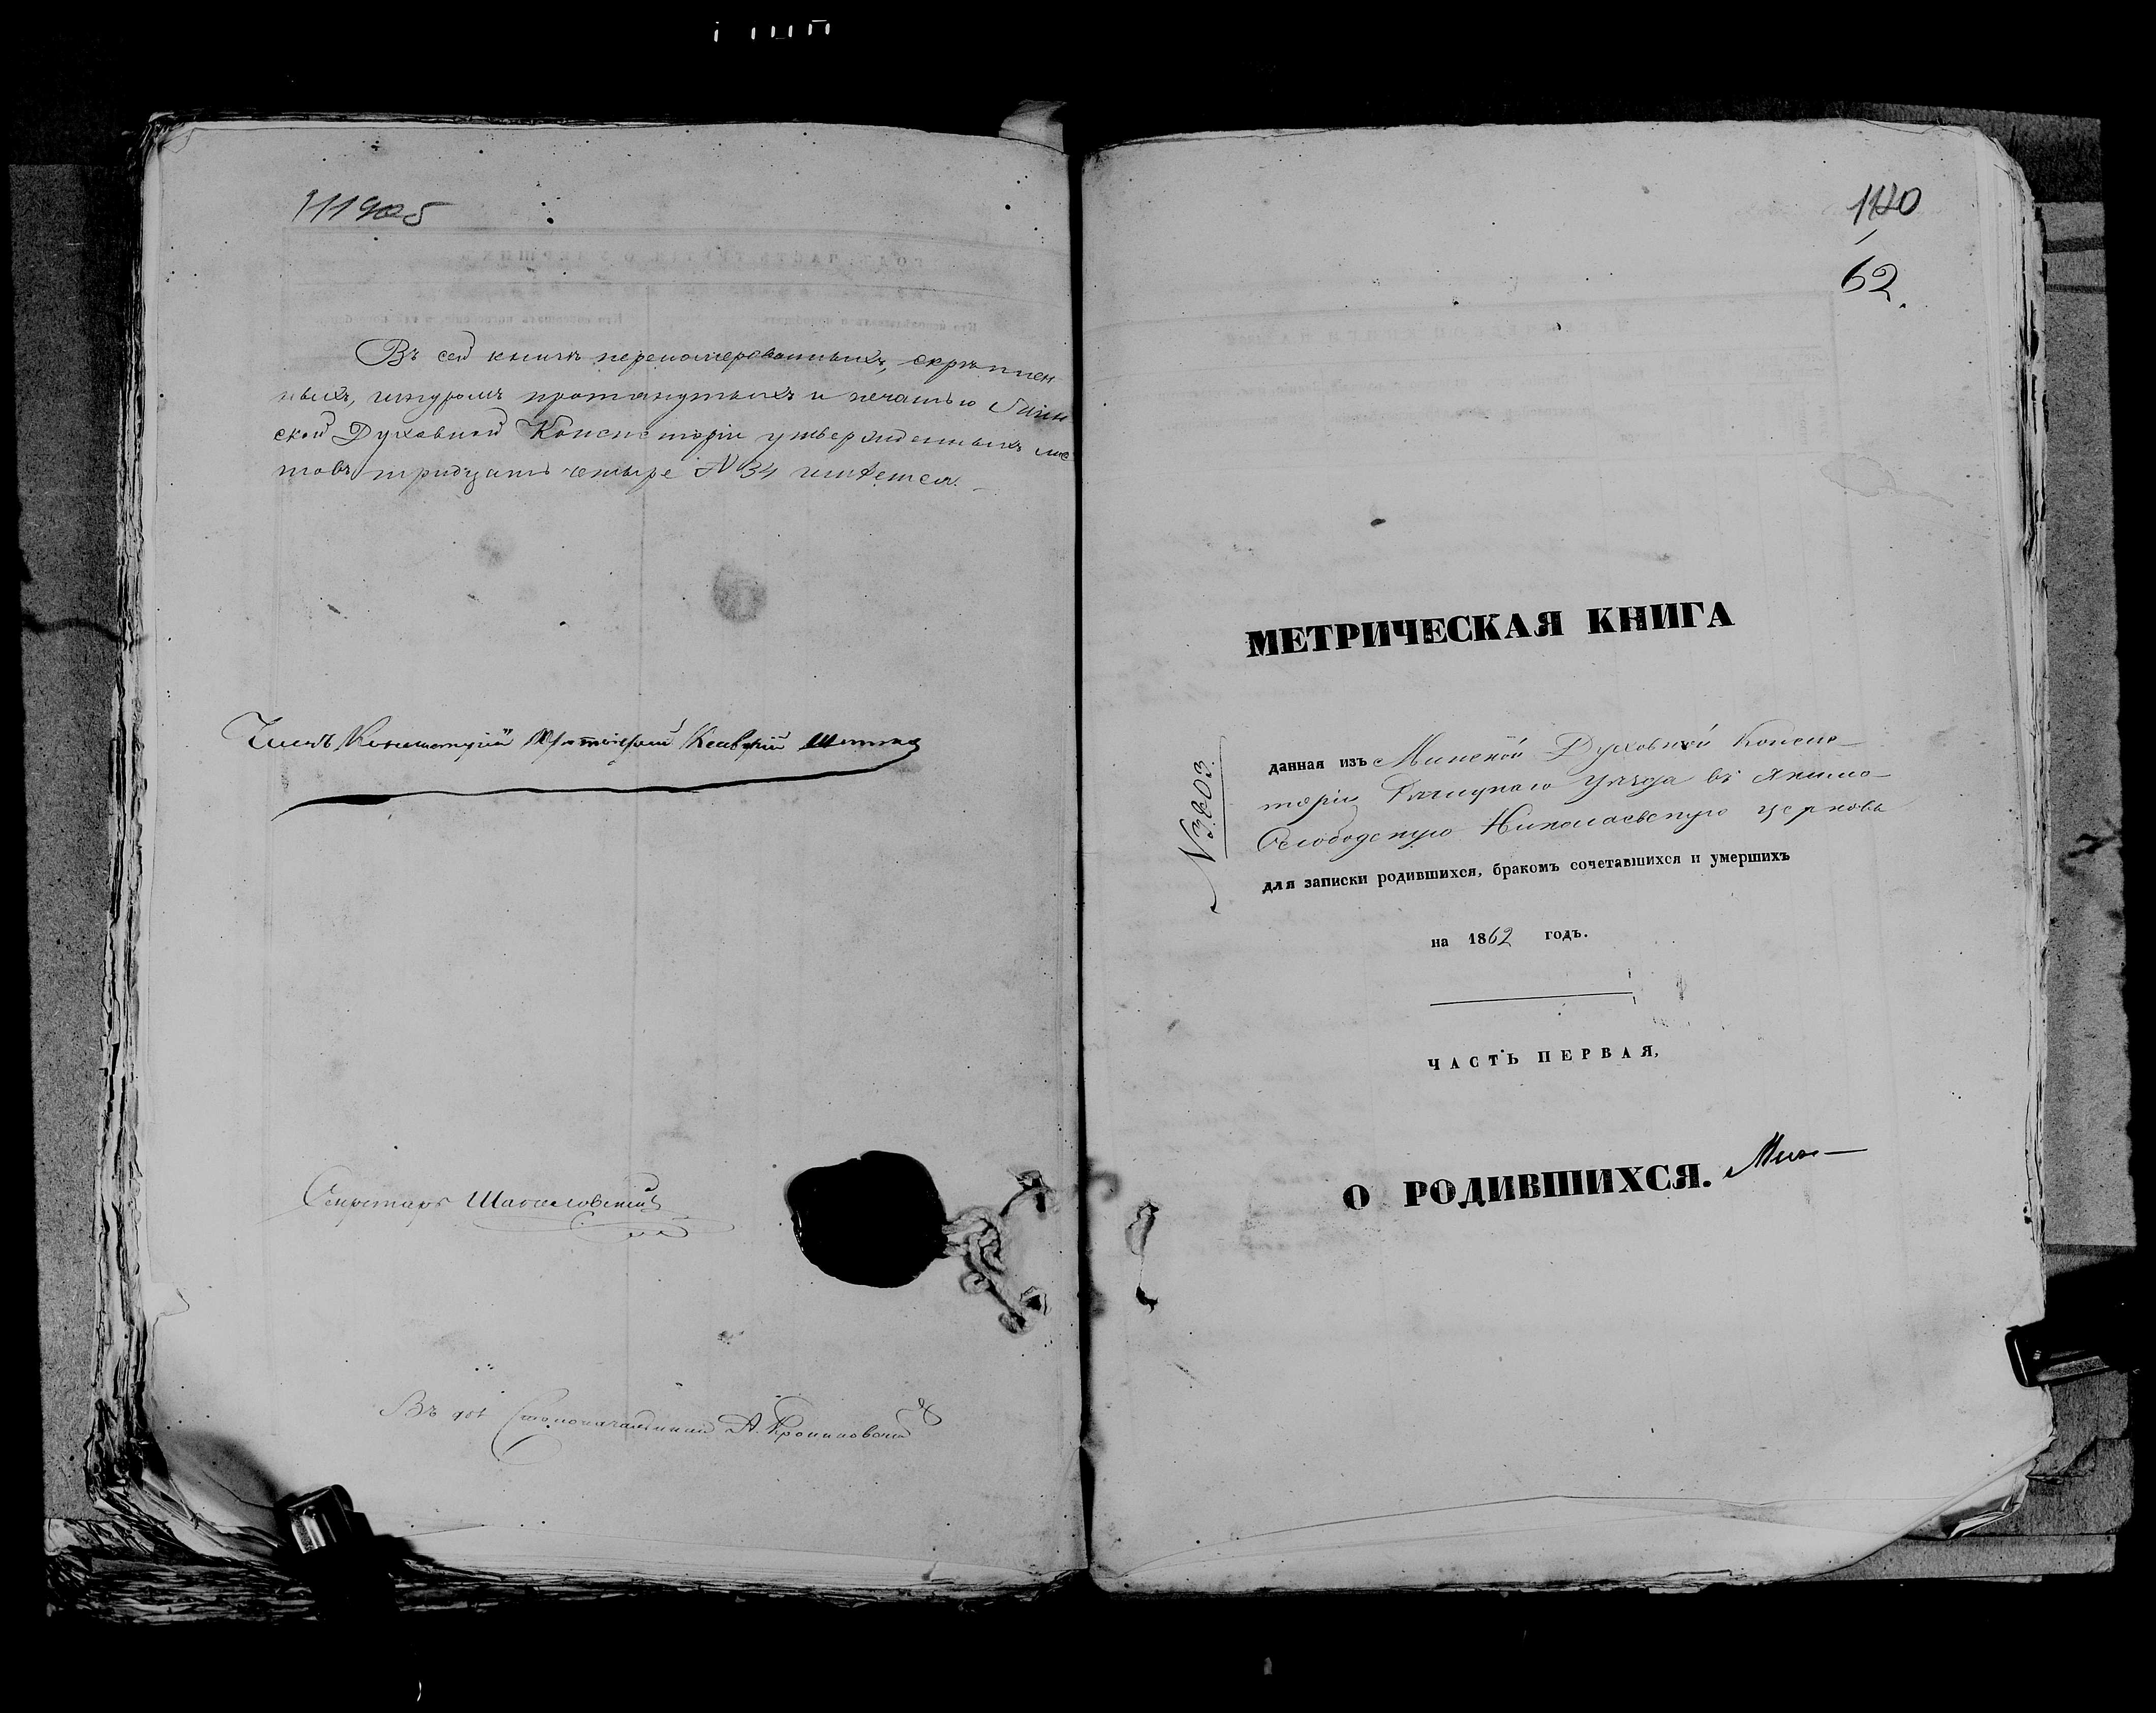 Въ сей книгѣ переномерованныхъ, скрѣплен
ныхъ, шнуромъ протянутыхъ и печатью Мин
ской Духовной Консисторіи утвержденныхъ лис
товъ тридцать четыре N 34 имѣется.
Членъ Консисторіи
Секретарь
Въ
Столоначальника А.
62.
МЕТРИЧЕСКАЯ КНИГА
N 3203.
данная изъ Минской Духовной Консис-
торіи уѣзда въ Якимо-
Слободскую Николаевскую церковь
для записки родившихся, бракомъ сочетавшихся и умершихъ
на 1862 годъ.
ЧАСТЬ ПЕРВАЯ,
О РОДИВШИХСЯ. Мин-